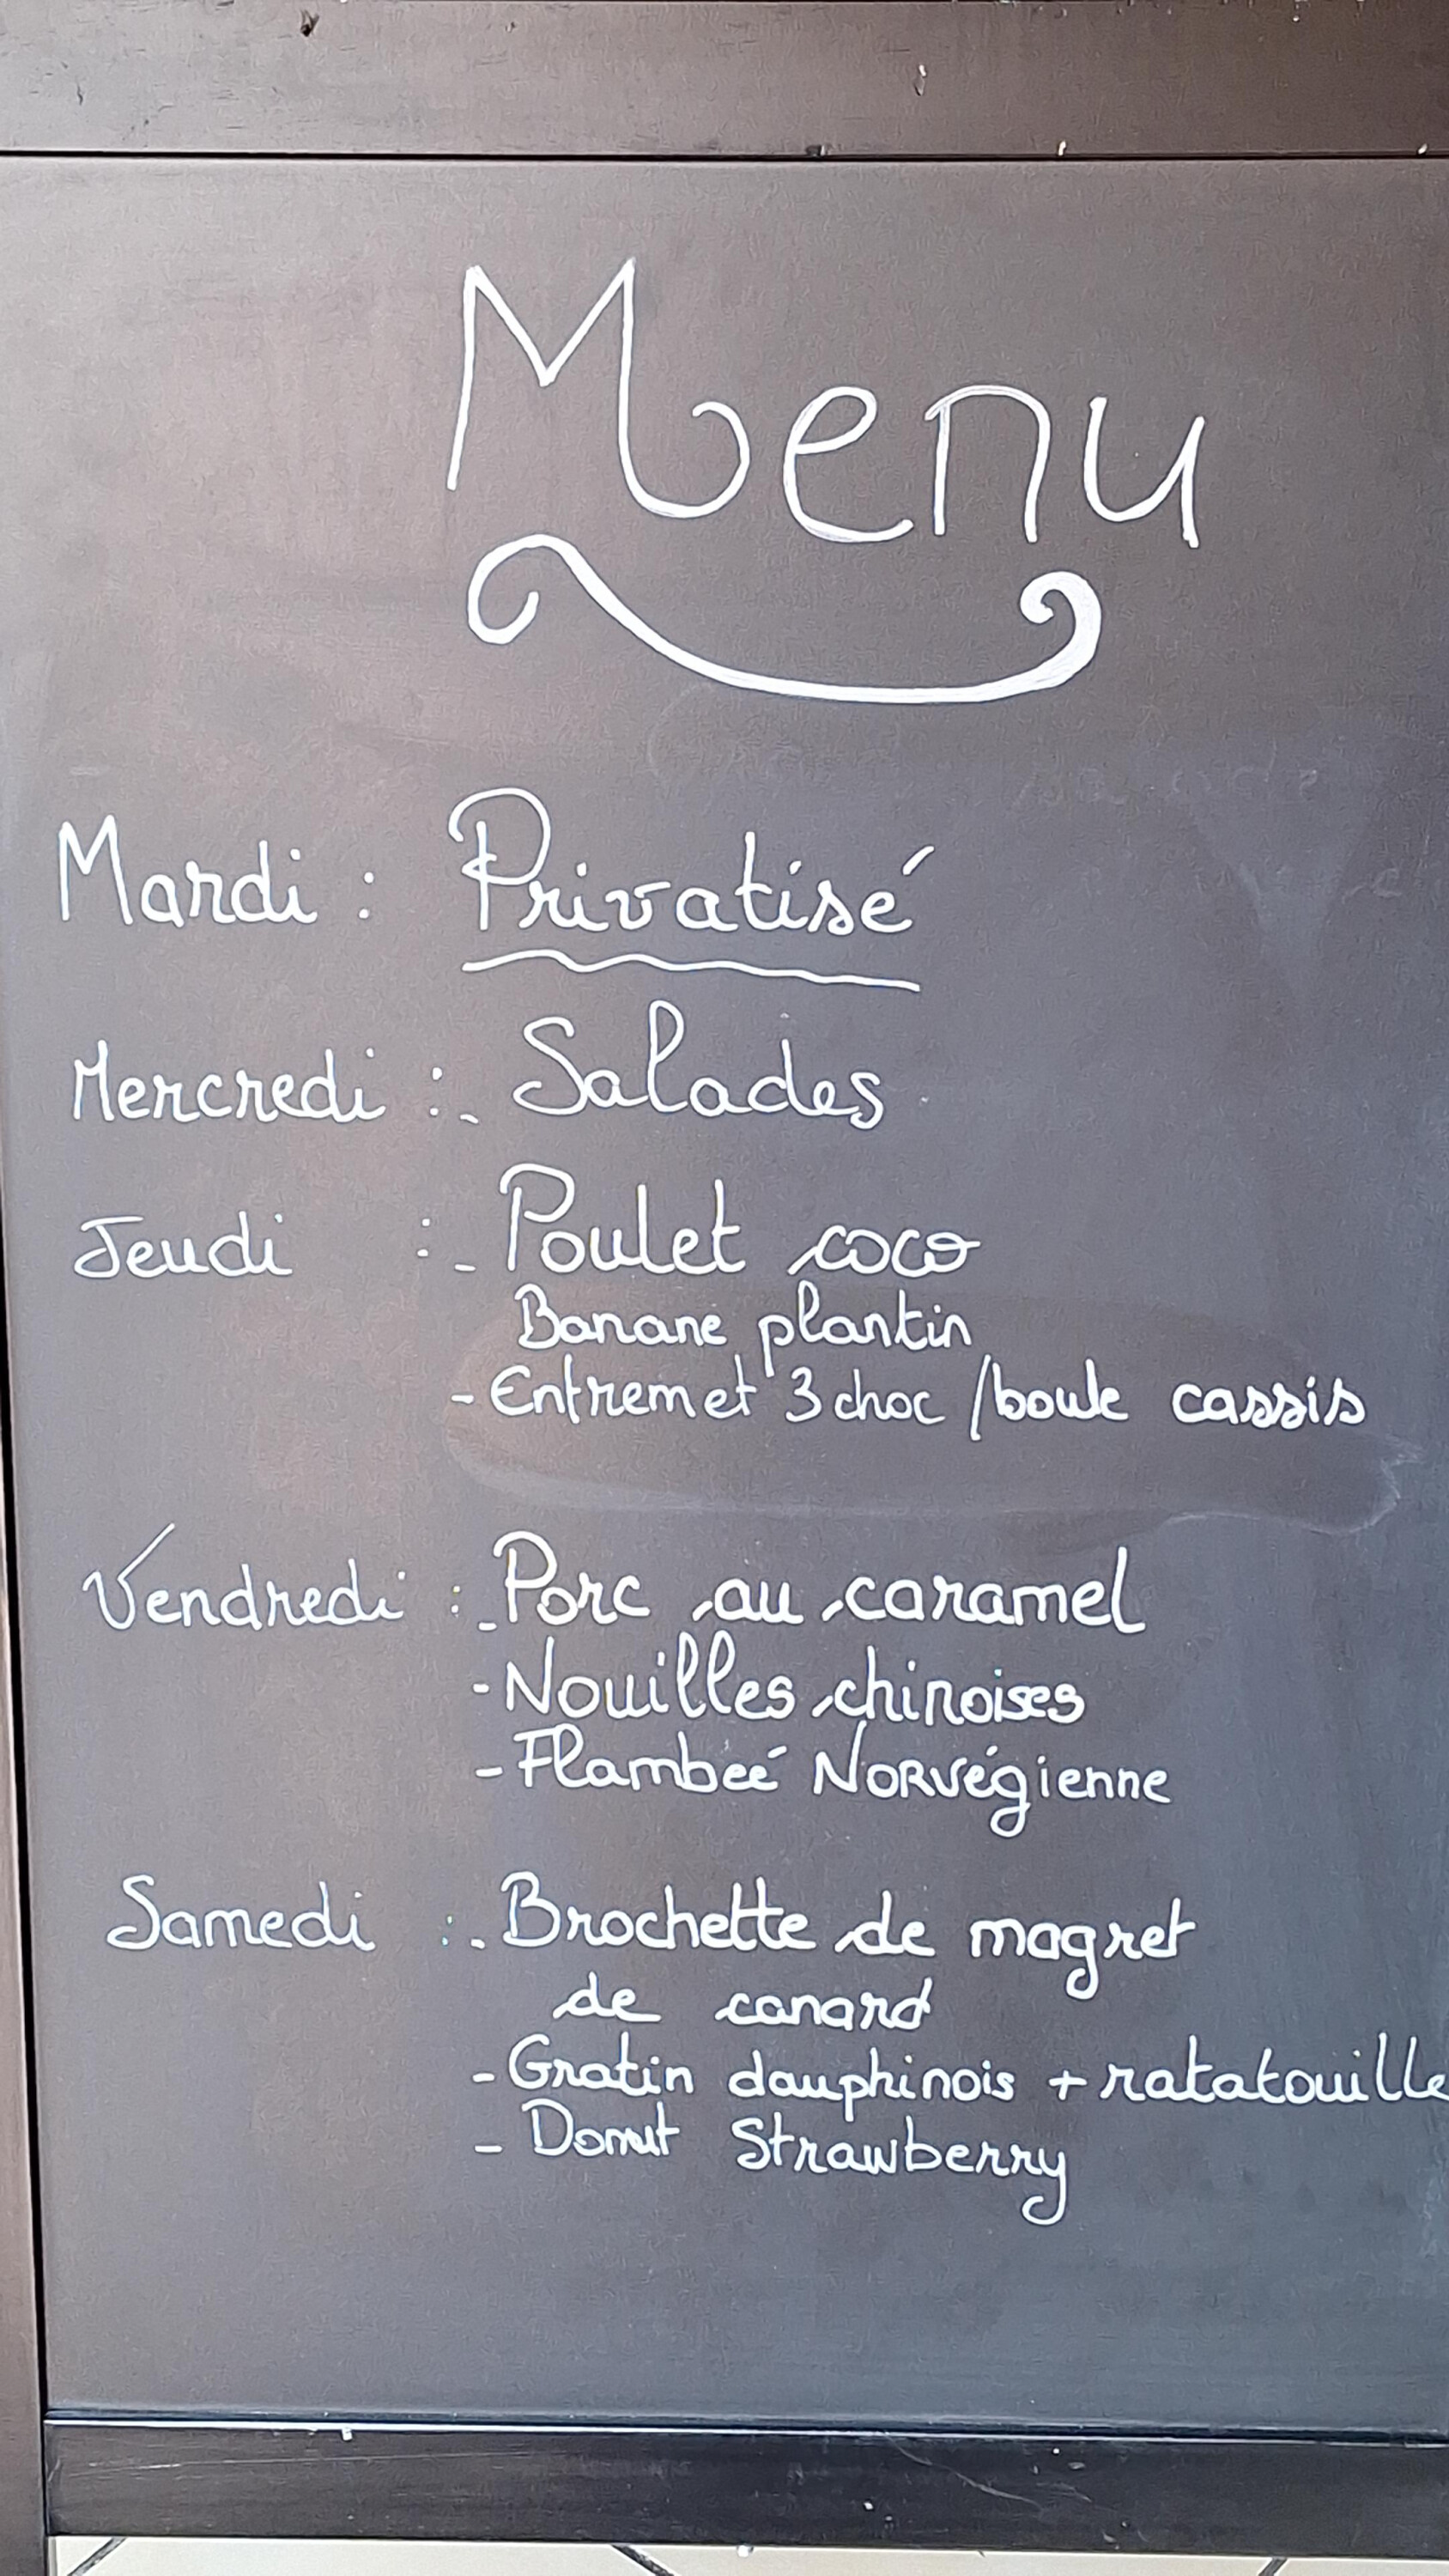 Menu
Mardi : Privatisé
Mercredi : - Salades
Jeudi : - Poulet coco
Banane plantin
- Entremet 3 choc / boule cassis
Vendredi : - Porc au caramel
- Nouilles chinoises
- Flambeé Norvégienne
Samedi : - Brochette de magret
de canard
- Gratin dauphinois + ratatouille
- Donut Strawberry